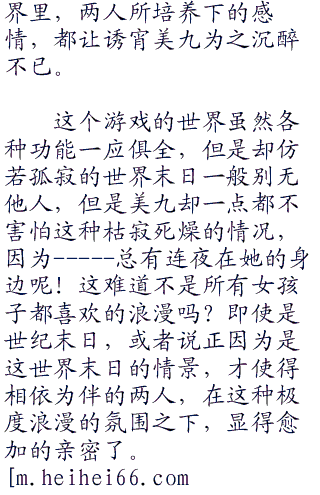 界里，两人所培养下的感
情，都让诱宵美九为之沉醉
不已。
这个游戏的世界虽然各
种功能一应俱全，但是却仿
若孤寂的世界末日一般别无
他人，但是美九却一点都不
害怕这种枯寂死燥的情况，
因为-----总有连夜在她的身
边呢！这难道不是所有女孩
子都喜欢的浪漫吗？即使是
世纪末日，或者说正因为是
这世界末日的情景，才使得
相依为伴的两人，在这种极
度浪漫的氛围之下，显得愈
加的亲密了。
[m.heihei66.com